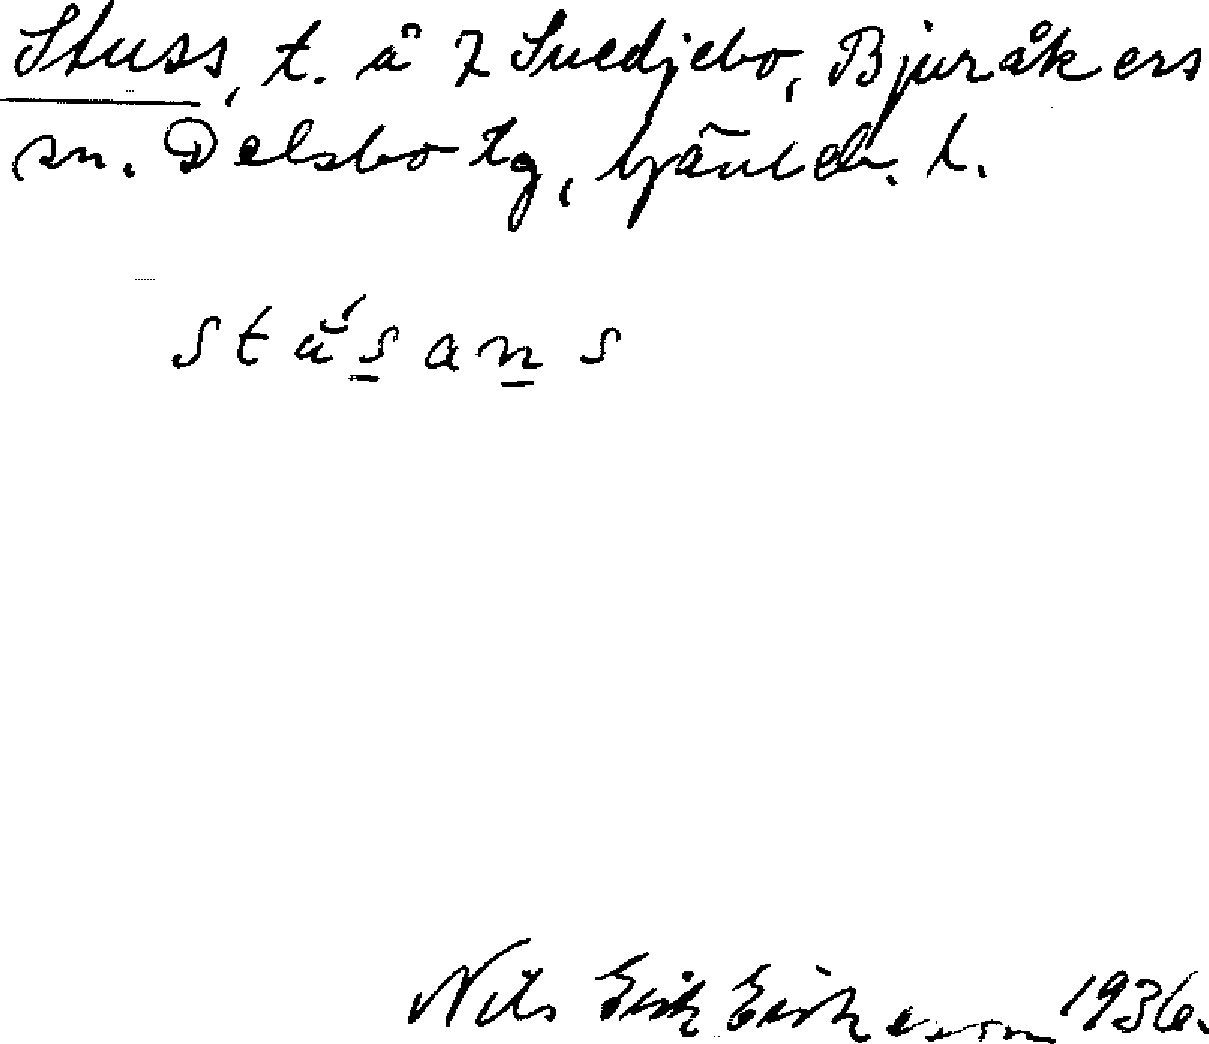 Stuss, t. å 7 Svedjebo, Bjuråkers
sn. Delsbo tg, Gävleb. l.
stu̇́s̲an̲s
Nils Erik Eriksson 1936.